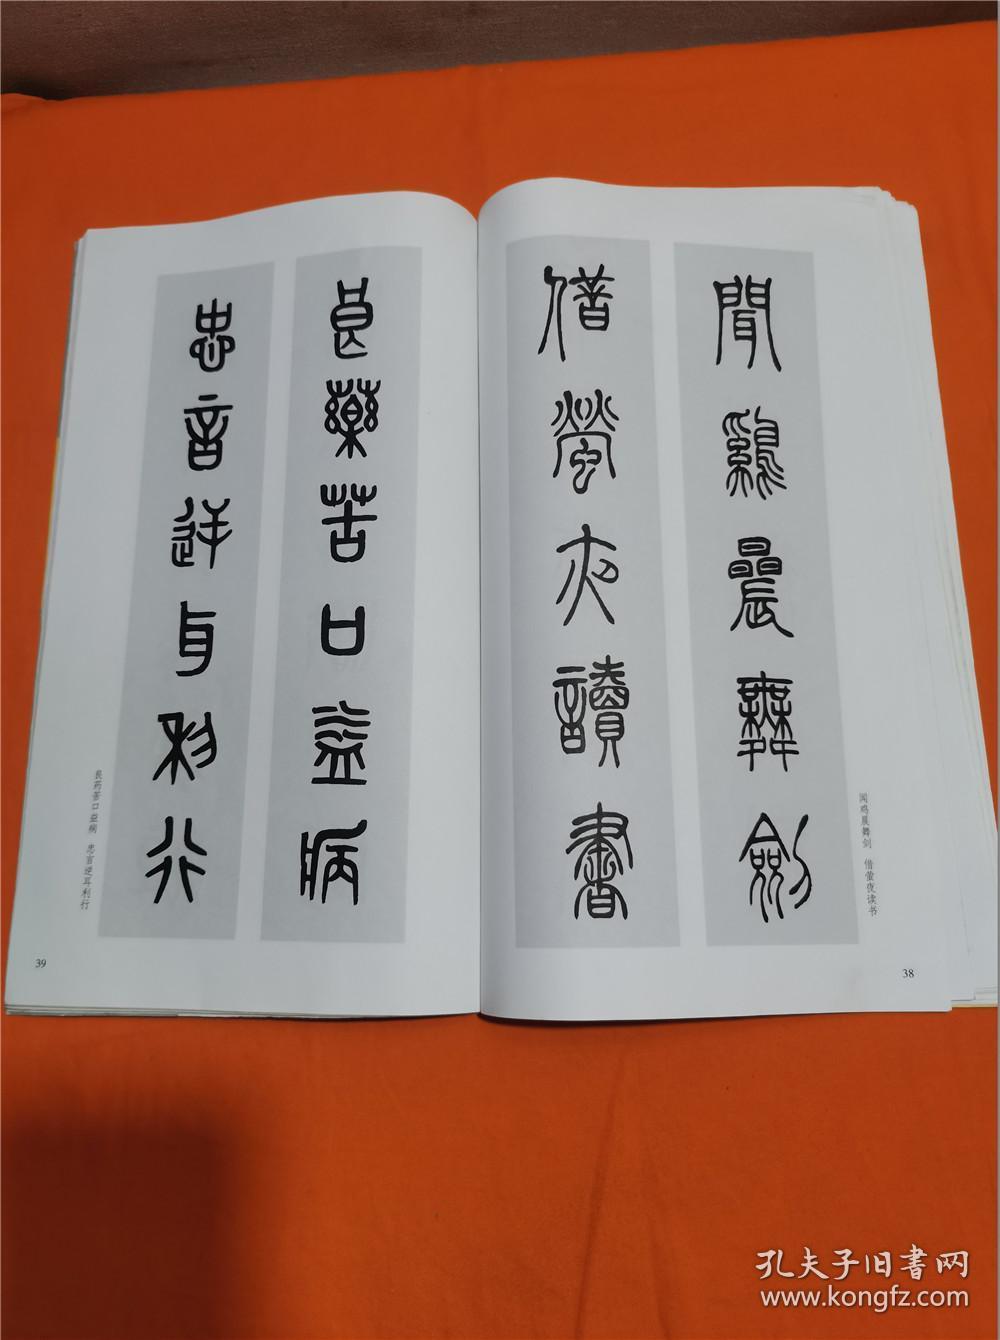 聞鷄晨舞劍
借螢夜讀書
闻鸡晨舞剑 借萤夜读书
38
良藥苦口益病
忠言逆耳利行
良药苦口益病 忠言逆耳利行
39
孔夫子旧書网
www.kongfz.com